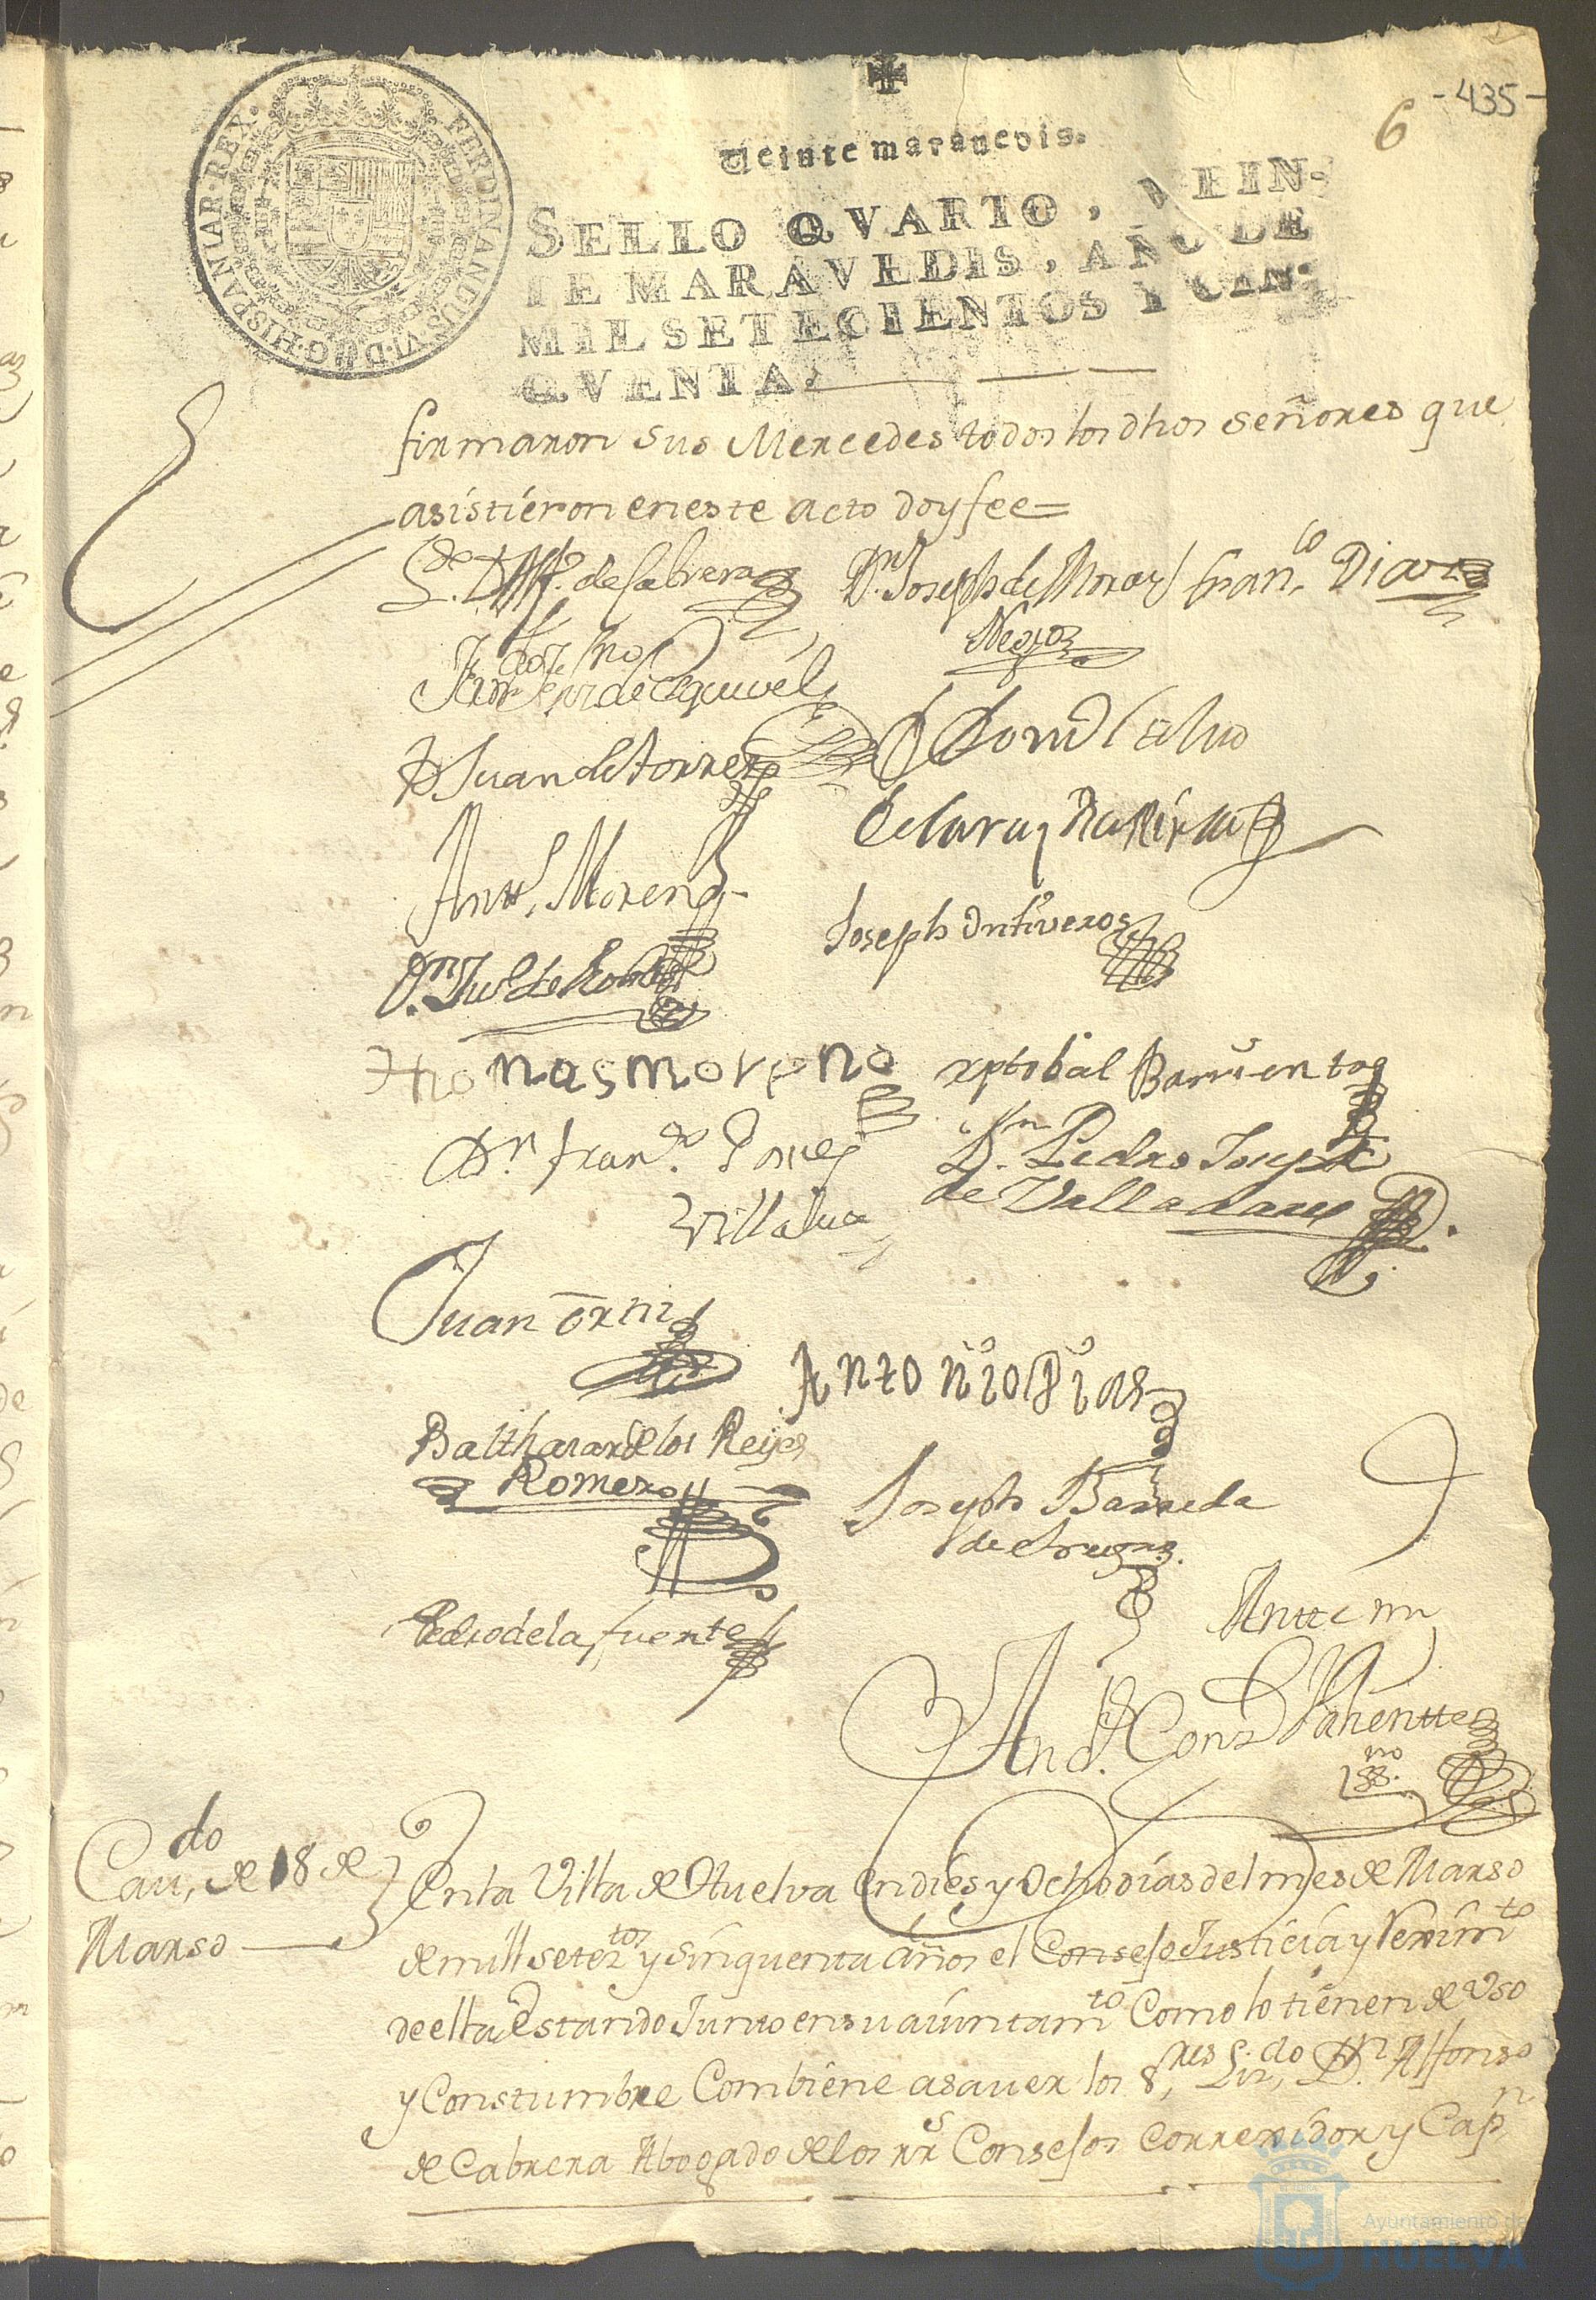 -435-
6
Veinte maravedis.
SELLO QVARTO, VEIN-
TE MARAVEDIS, AÑO DE
MIL SETECIENTOS Y CIN-
QVENTA.
FERDINANDUS·VI·D·G·HISPANIAR·REX·
firmaron sus Mercedes todos los dhos señores que
asistieron en este acto doy fee=
de Cabrera
Dn. Joseph de Mora
franco. Diaz
Negro
de Esquivel
Dn Juan de Torres
Calvo
de lara y Ramirez
Antto. Moreno
Joseph Ontiveros
Thomas moreno
xptobal Barrientos
Dn. franco. Ponce
Villalva
Dn. Pedro Joseph
de Valladares
Juan
Antonio Dias
Balthasar de los Reyes
Romero
Joseph Barreda
Pedro de la fuente
Antte mi
Andrs. Gonz Parientte
ssno.
Cavdo. de 18 de
Marso
En la Villa de Huelva en dies y Ocho dias del mes de Marso
de mill setezтos y sinquenta años el Consejo Justicia y Reximto
de ella Estando Junto en su aiuntamto Como lo tienen de Uso
y Constumbre Combiene a saver los Sres Lizdo Dn. Alfonso
de Cabrera Abogado de los rrs Consejos Correxidor y Capn
Ayuntamiento de
HUELVA